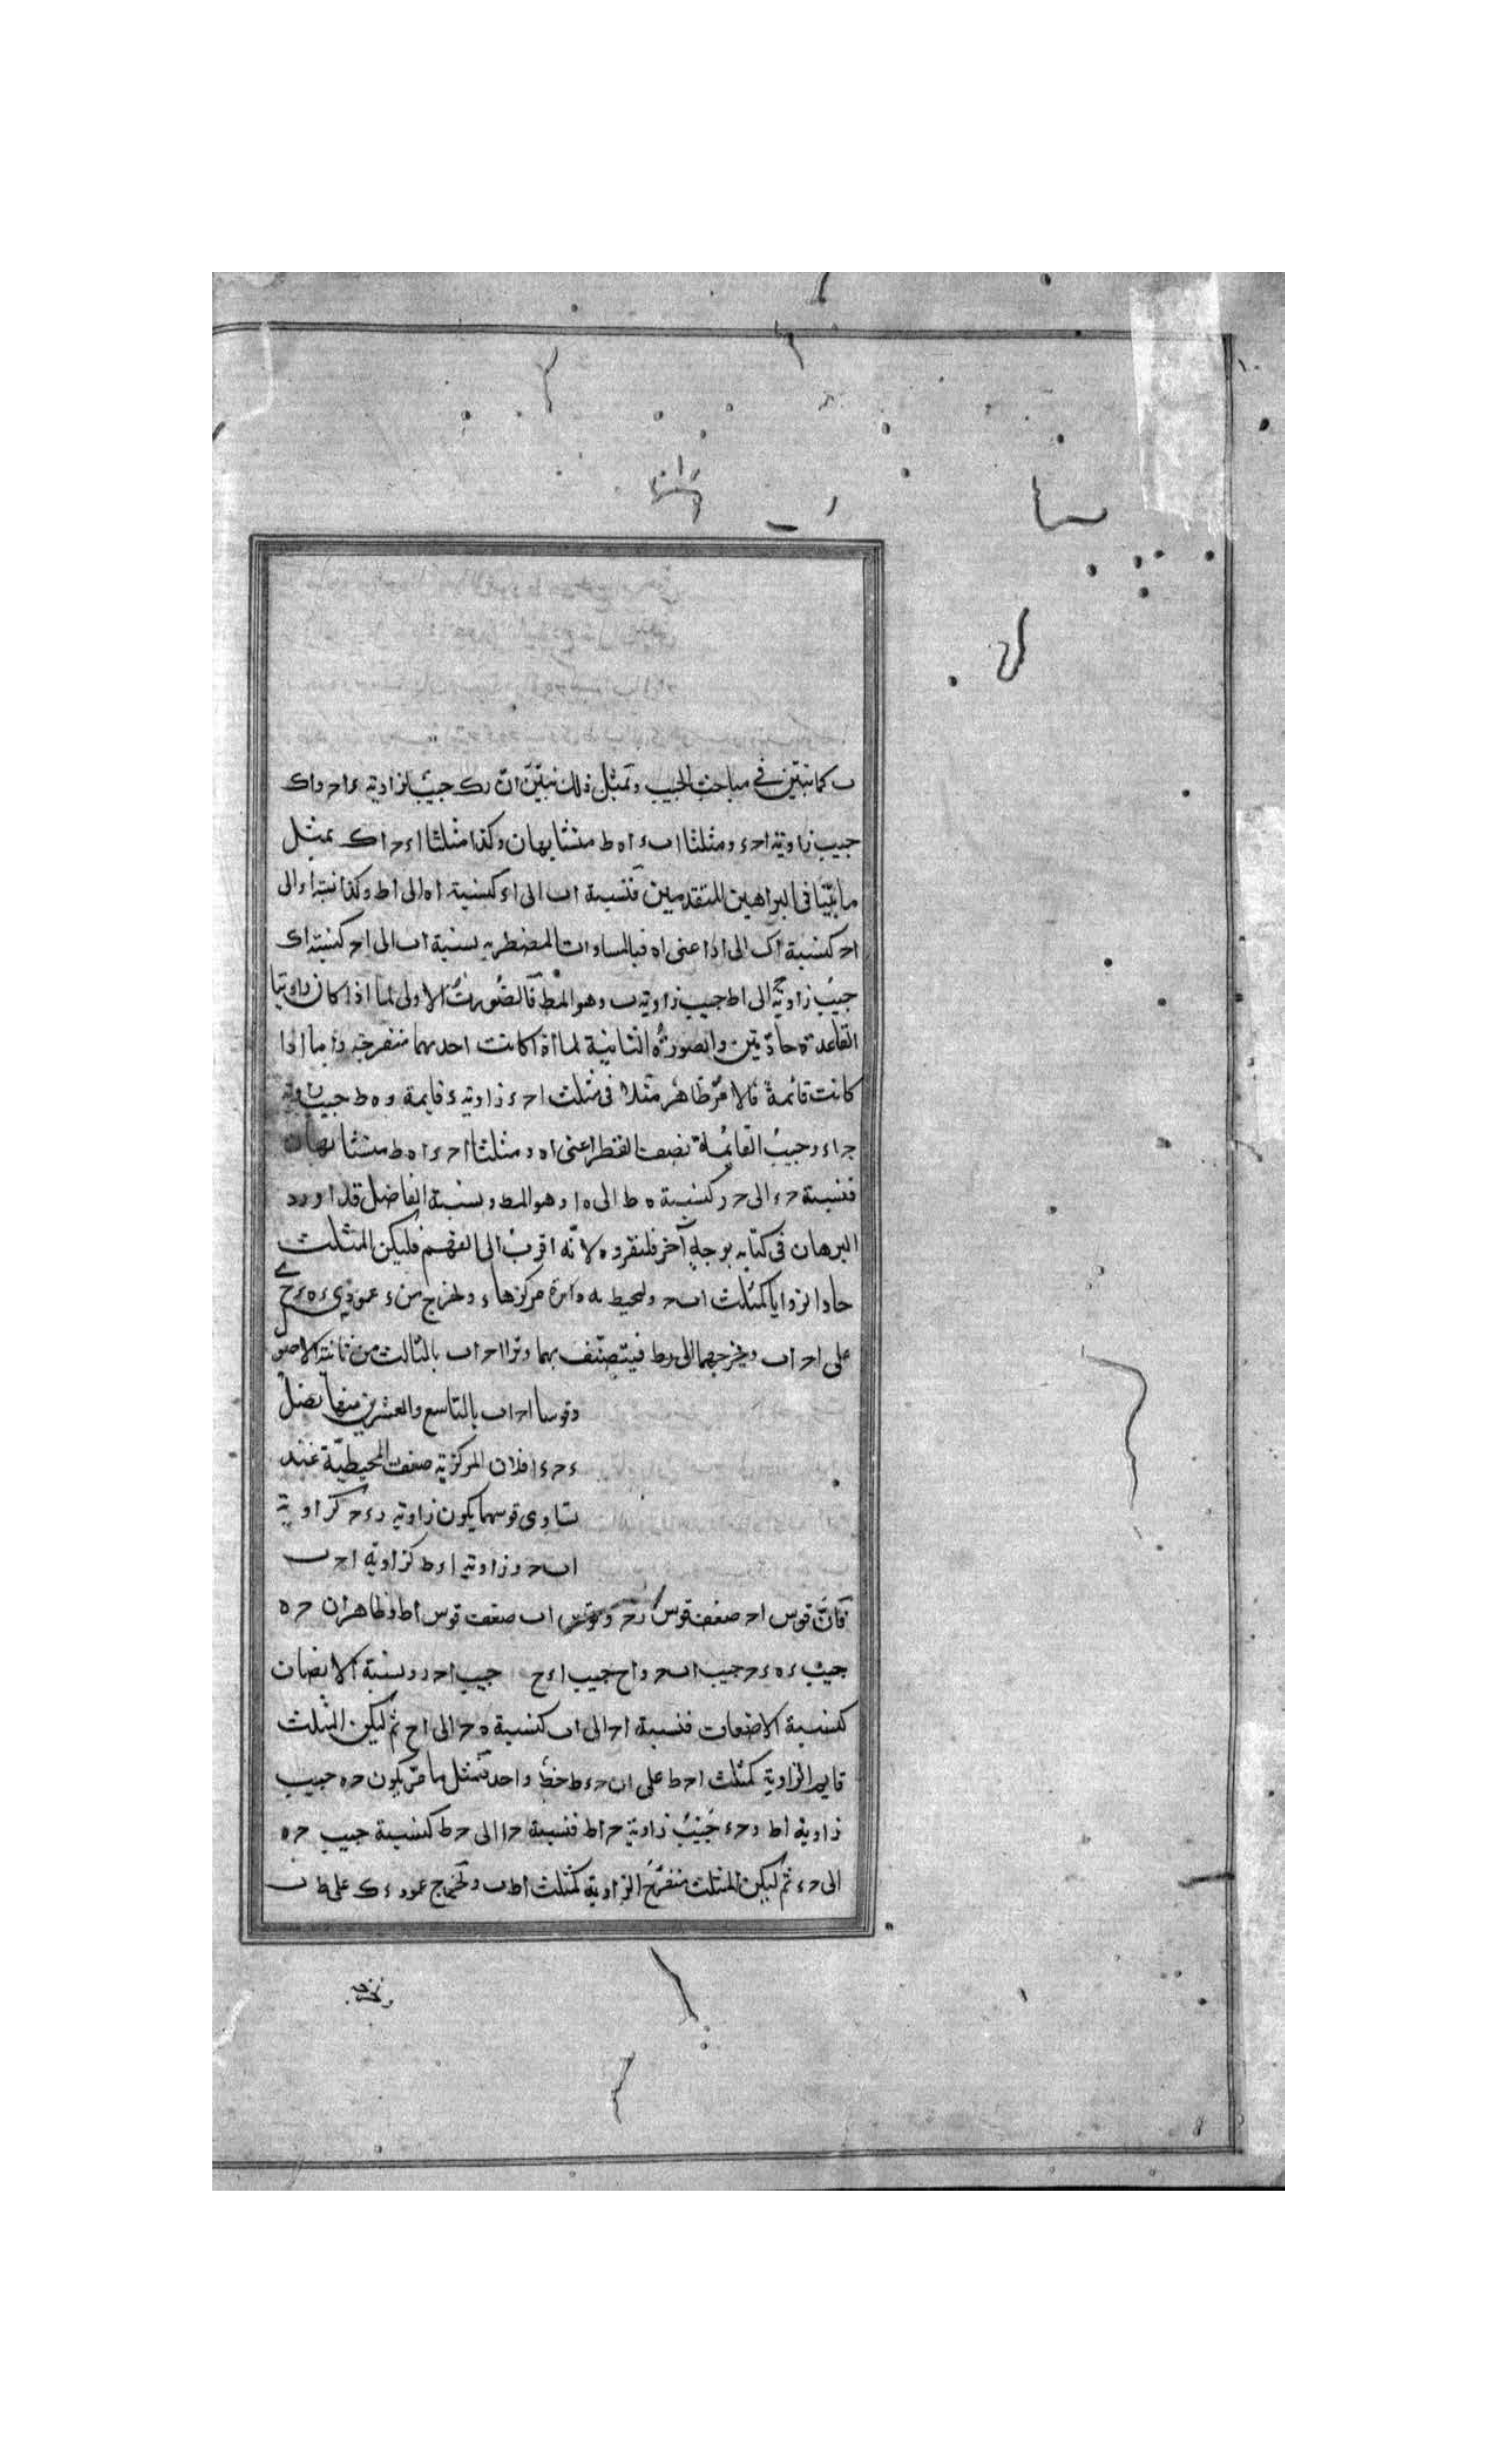 ب كما تبين في مباحث الجيب وبمثل ذلك نبين ان رك جيب لزاوية ء ا حـ واك
جيب زاوية ا حـ ء ومثلثا ا ب ء ا ه ط متشابهان وكذا مثلثا ا ء حـ ا ك بمثل
ما بينا في البراهين المتقدمين فنسبة ا ب الى ا ء كنسبة ا ه الى ا ط وكذا نسبة ا ء الى
ا حـ كنسبة ا ك الى ا ر اعنى ا ه فبالمساوات المضطربه نسبة ا ب الى ا حـ كنسبة ا ك
جيب زاوية حـ الى ا ط جيب زاوية ب وهو المط فالصورت الاولى لما اذا كان زاويتا
القاعدة حادتين والصورة الثانية لما اذا كانت احدهما منفرجة واما اذا
كانت قائمة فالامر ظاهر مثلا في مثلث ا حـ ء زاوية ء قايمة و ه ط جيب زاوية
حـ ا ء وجيب القايمة نصف القطر اعنى ا ه ومثلثا ا حـ ء ا ه ط متشابهان
فنسبة حـ ء الى حـ ر كنسبة ه ط الى ه ا وهو المط و الفاضل قد اورد
البرهان في كتابه بوجه آخر فلنقرره لانه اقرب الى الفهم فليكن المثلث
حاد الزوايا كمثلث ا ب حـ وليحيط به دائرة مركزها ء ولنخرج من ء عمودي ء ه ء ح
على ا حـ ا ب ونخرجهما الى ر ط فيتنصف بهما وترا ا حـ ا ب بالثالث من ثالثة الاصول
وقوسا ا حـ ا ب بالتاسع والعشرين منها نصل
ء حـ ء ا فلان المركزية ضعف المحيطية عند
تساوى قوسهما يكون زاوية ر ء حـ كزاوية
ا ب حـ وزاوية ا ء ط كزاوية ا حـ ب
فان قوس ا حـ ضعف قوس ر حـ وقوس ا ب ضعف قوس ا ط وظاهر ان حـ ه
جيب ء ه ء حـ جيب ا ب حـ و ا ح جيب ا ء ح جيب ا حـ ر ونسبة الانصاف
كنسبة الاضعاف فنسبة ا حـ الى ا ب كنسبة ه حـ الى ا ح ثم ليكن المثلث
قايم الزاوية كمثلث ا حـ ط على ان حـ ء ط خط واحد فبمثل ما مر يكون حـ ه جيب
زاوية ا ط و حـ ء جيب زاوية حـ ا ط فنسبة حـ ا الى حـ ط كنسبة جيب حـ ه
الى حـ ء ثم ليكن المثلث منفرج الزاوية كمثلث ا ط ب ولنخرج عمود ء ك على ط ب